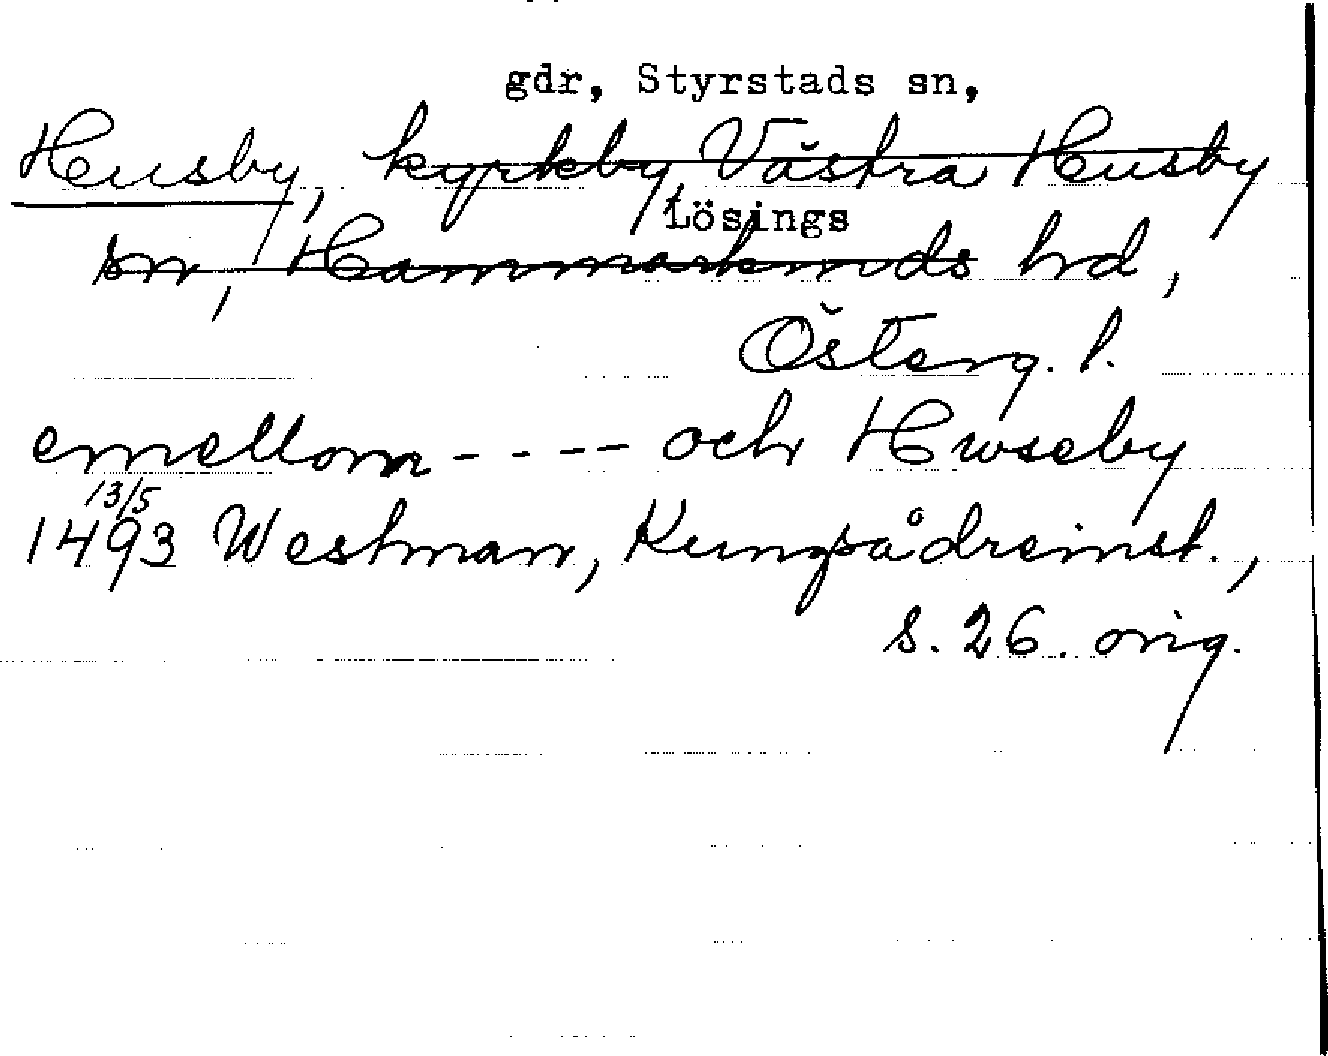 gdr, Styrstads sn,
Husby, kyrkby, Västra Husby
Lösings
sn, Hammarkinds hd,
Österg. l.
emellom - - - - och Hwseby
13/5
1493 Westman, Kungsådreinst.,
s. 26. orig.